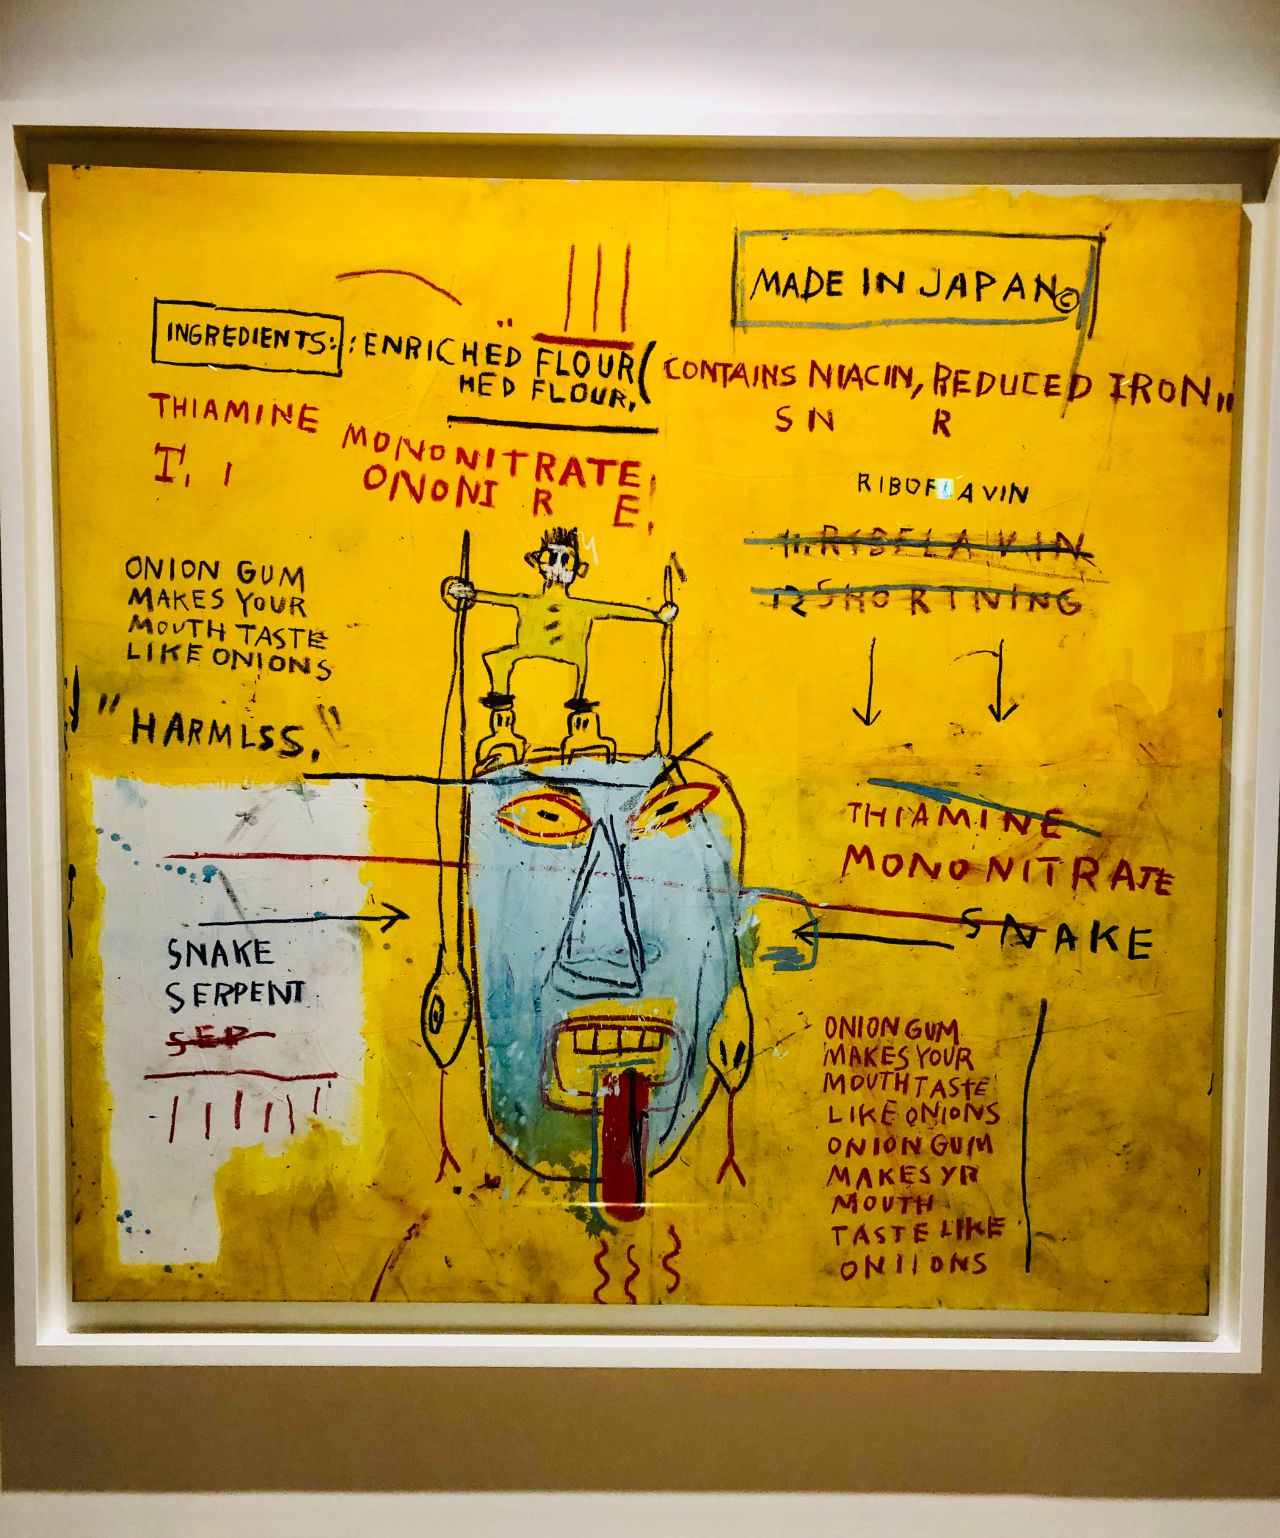 MADE IN JAPAN©
INGREDIENTS: : ENRICHED FLOUR(
HED FLOUR,
CONTAINS NIACIN, REDUCED IRON,,
S N R
THIAMINE MONONITRATE,
I, I ONONI R E,
RIBOFLAVIN
RIBFLAVIN
SHORTNING
ONION GUM
MAKES YOUR
MOUTH TASTE
LIKE ONIONS
"HARMLSS,"
THIAMINE
MONONITRATE
SNAKE
SNAKE
SERPENT
SEP
ONION GUM
MAKES YOUR
MOUTH TASTE
LIKE ONIONS
ONION GUM
MAKES YR
MOUTH
TASTE LIKE
ONIIONS